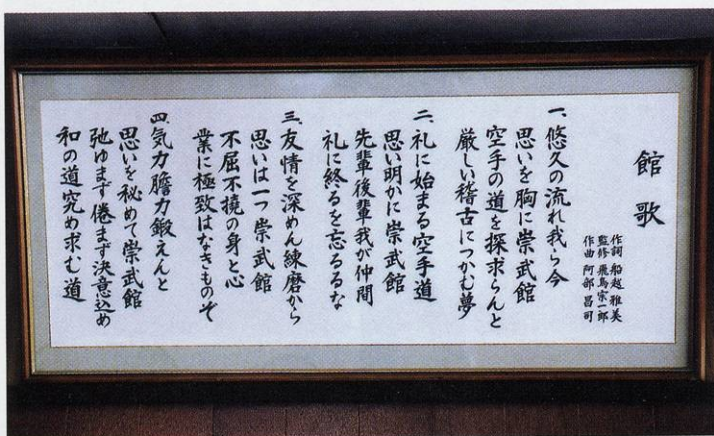 館歌
作詞 船越雅美
監修 飛鳥宗一郎
作曲 阿部昌司
一、悠久の流れ我ら今
思いを胸に崇武館
空手の道を探求らんと
厳しい稽古につかむ夢
二、礼に始まる空手道
思い明かに崇武館
先輩後輩我が仲間
礼に終るを忘るるな
三、友情を深めん練磨から
思いは一つ崇武館
不屈不撓の身と心
業に極致はなきものぞ
四、気力膽力鍛えんと
思いを秘めて崇武館
弛ゆまず倦まず決意込め
和の道究め求む道